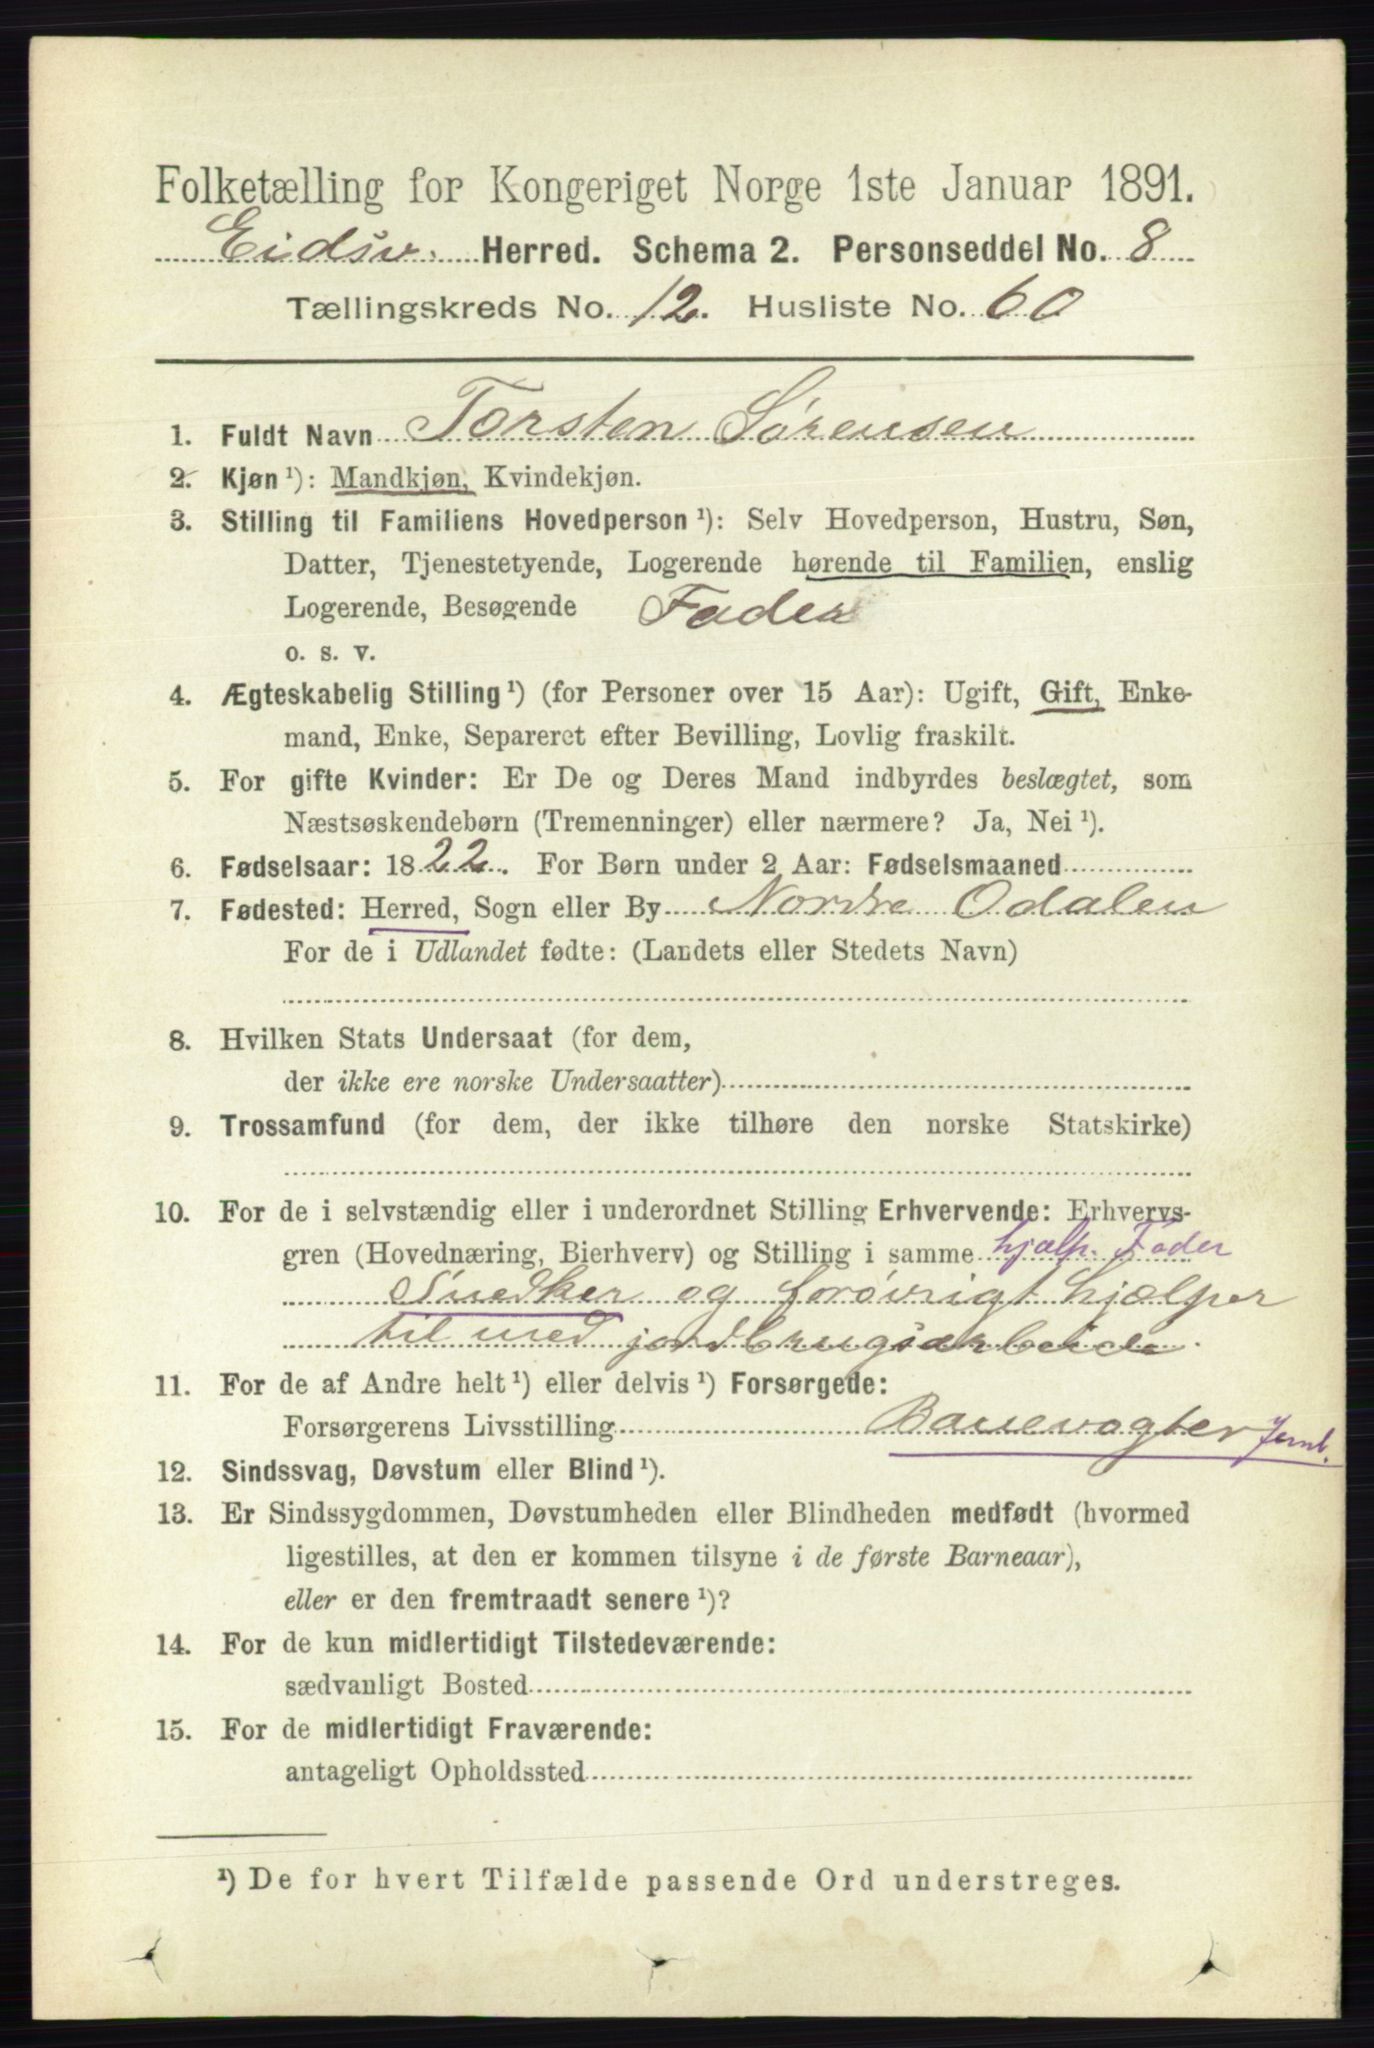 Folketælling for Kongeriget Norge 1ste Januar 1891.
Eidsv. Herred. Schema 2. Personseddel No. 8
Tællingskreds No. 12. Husliste No. 60
1. Fuldt Navn Torsten Sørensen
2. Kjøn ¹): Mandkjøn, Kvindekjøn.
3. Stilling til Familiens Hovedperson ¹): Selv Hovedperson, Hustru, Søn,
Datter, Tjenestetyende, Logerende hørende til Familien, enslig
Logerende, Besøgende Fader
o. s. v.
4. Ægteskabelig Stilling ¹) (for Personer over 15 Aar): Ugift, Gift, Enke-
mand, Enke, Separeret efter Bevilling, Lovlig fraskilt.
5. For gifte Kvinder: Er De og Deres Mand indbyrdes beslægtet, som
Næstsøskendebørn (Tremenninger) eller nærmere? Ja, Nei ¹).
6. Fødselsaar: 1822. For Børn under 2 Aar: Fødselsmaaned
7. Fødested: Herred, Sogn eller By Nordre Odalen
For de i Udlandet fødte: (Landets eller Stedets Navn)
8. Hvilken Stats Undersaat (for dem,
der ikke ere norske Undersaatter)
9. Trossamfund (for dem, der ikke tilhøre den norske Statskirke)
10. For de i selvstændig eller i underordnet Stilling Erhvervende: Erhvervs-
gren (Hovednæring, Bierhverv) og Stilling i samme hjælp. Fader
Snedker og forøvrigt hjælper
til med jordbrugsarbeide.
11. For de af Andre helt ¹) eller delvis ¹) Forsørgede:
Forsørgerens Livsstilling Banevogter Jernb.
12. Sindssvag, Døvstum eller Blind ¹).
13. Er Sindssygdommen, Døvstumheden eller Blindheden medfødt (hvormed
ligestilles, at den er kommen tilsyne i de første Barneaar),
eller er den fremtraadt senere ¹)?
14. For de kun midlertidigt Tilstedeværende:
sædvanligt Bosted
15. For de midlertidigt Fraværende:
antageligt Opholdssted
¹) De for hvert Tilfælde passende Ord understreges.